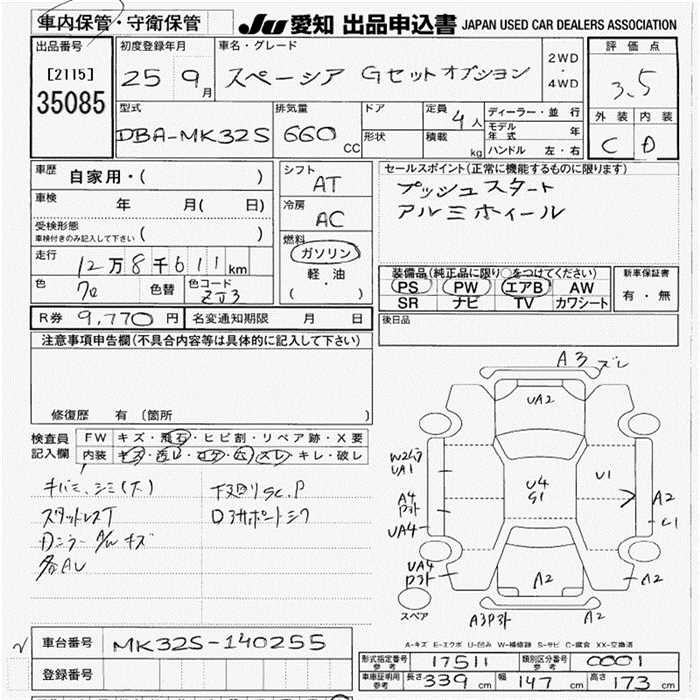 車内保管・守衛保管
JU 愛知 出品申込書 JAPAN USED CAR DEALERS ASSOCIATION
出品番号 初度登録年月 車名・グレード 評価点
[2115] 25 9月 スペーシア Gセットオプション 2WD・4WD 3.5
35085
型式 排気量 ドア 定員 4人 ディーラー・並行 外装 内装
DBA-MK32S 660cc 形状 積載 kg モデル年式 年 C D
ハンドル 左・右
車歴 自家用・( ) シフト AT セールスポイント(正常に機能するものに限ります)
車検 年 月( 日) 冷房 AC プッシュスタート
アルミホイール
受検形態 ( )
車検付きのみ記入して下さい
燃料 ガソリン 軽油 ( ・ )
走行 12万8千611km 装備品(純正品に限り○をつけてください) 新車保証書
色 色替 色コード ZJ3 PS PW エアB AW 有・無
SR ナビ TV カワシート
R券 9,770円 名変通知期限 月 日 後日品
注意事項申告欄(不具合内容等は具体的に記入して下さい)
修復歴 有 (箇所 )
検査員 FW キズ・飛石・ヒビ割・リペア跡・X要
記入欄 内装 キズ・汚レ・コゲ・穴・スレ・キレ・破レ
キバミ、シミ(大) 下廻りSC.P
スタットレスT
各AU
A3 ズレ
UA2
UA1
U4
G1
U1
A4
A2
UA4
UA4
A2
A2
スペア
A-キズ E-エクボ U-凹み W-補修跡 S-サビ C-腐食 XX-交換済
車台番号 MK32S-140255
登録番号
形式指定番号 参考 17511 類別区分番号 参考 0001
車庫証明用 参考 長さ 339cm 幅 147cm 高さ 173cm